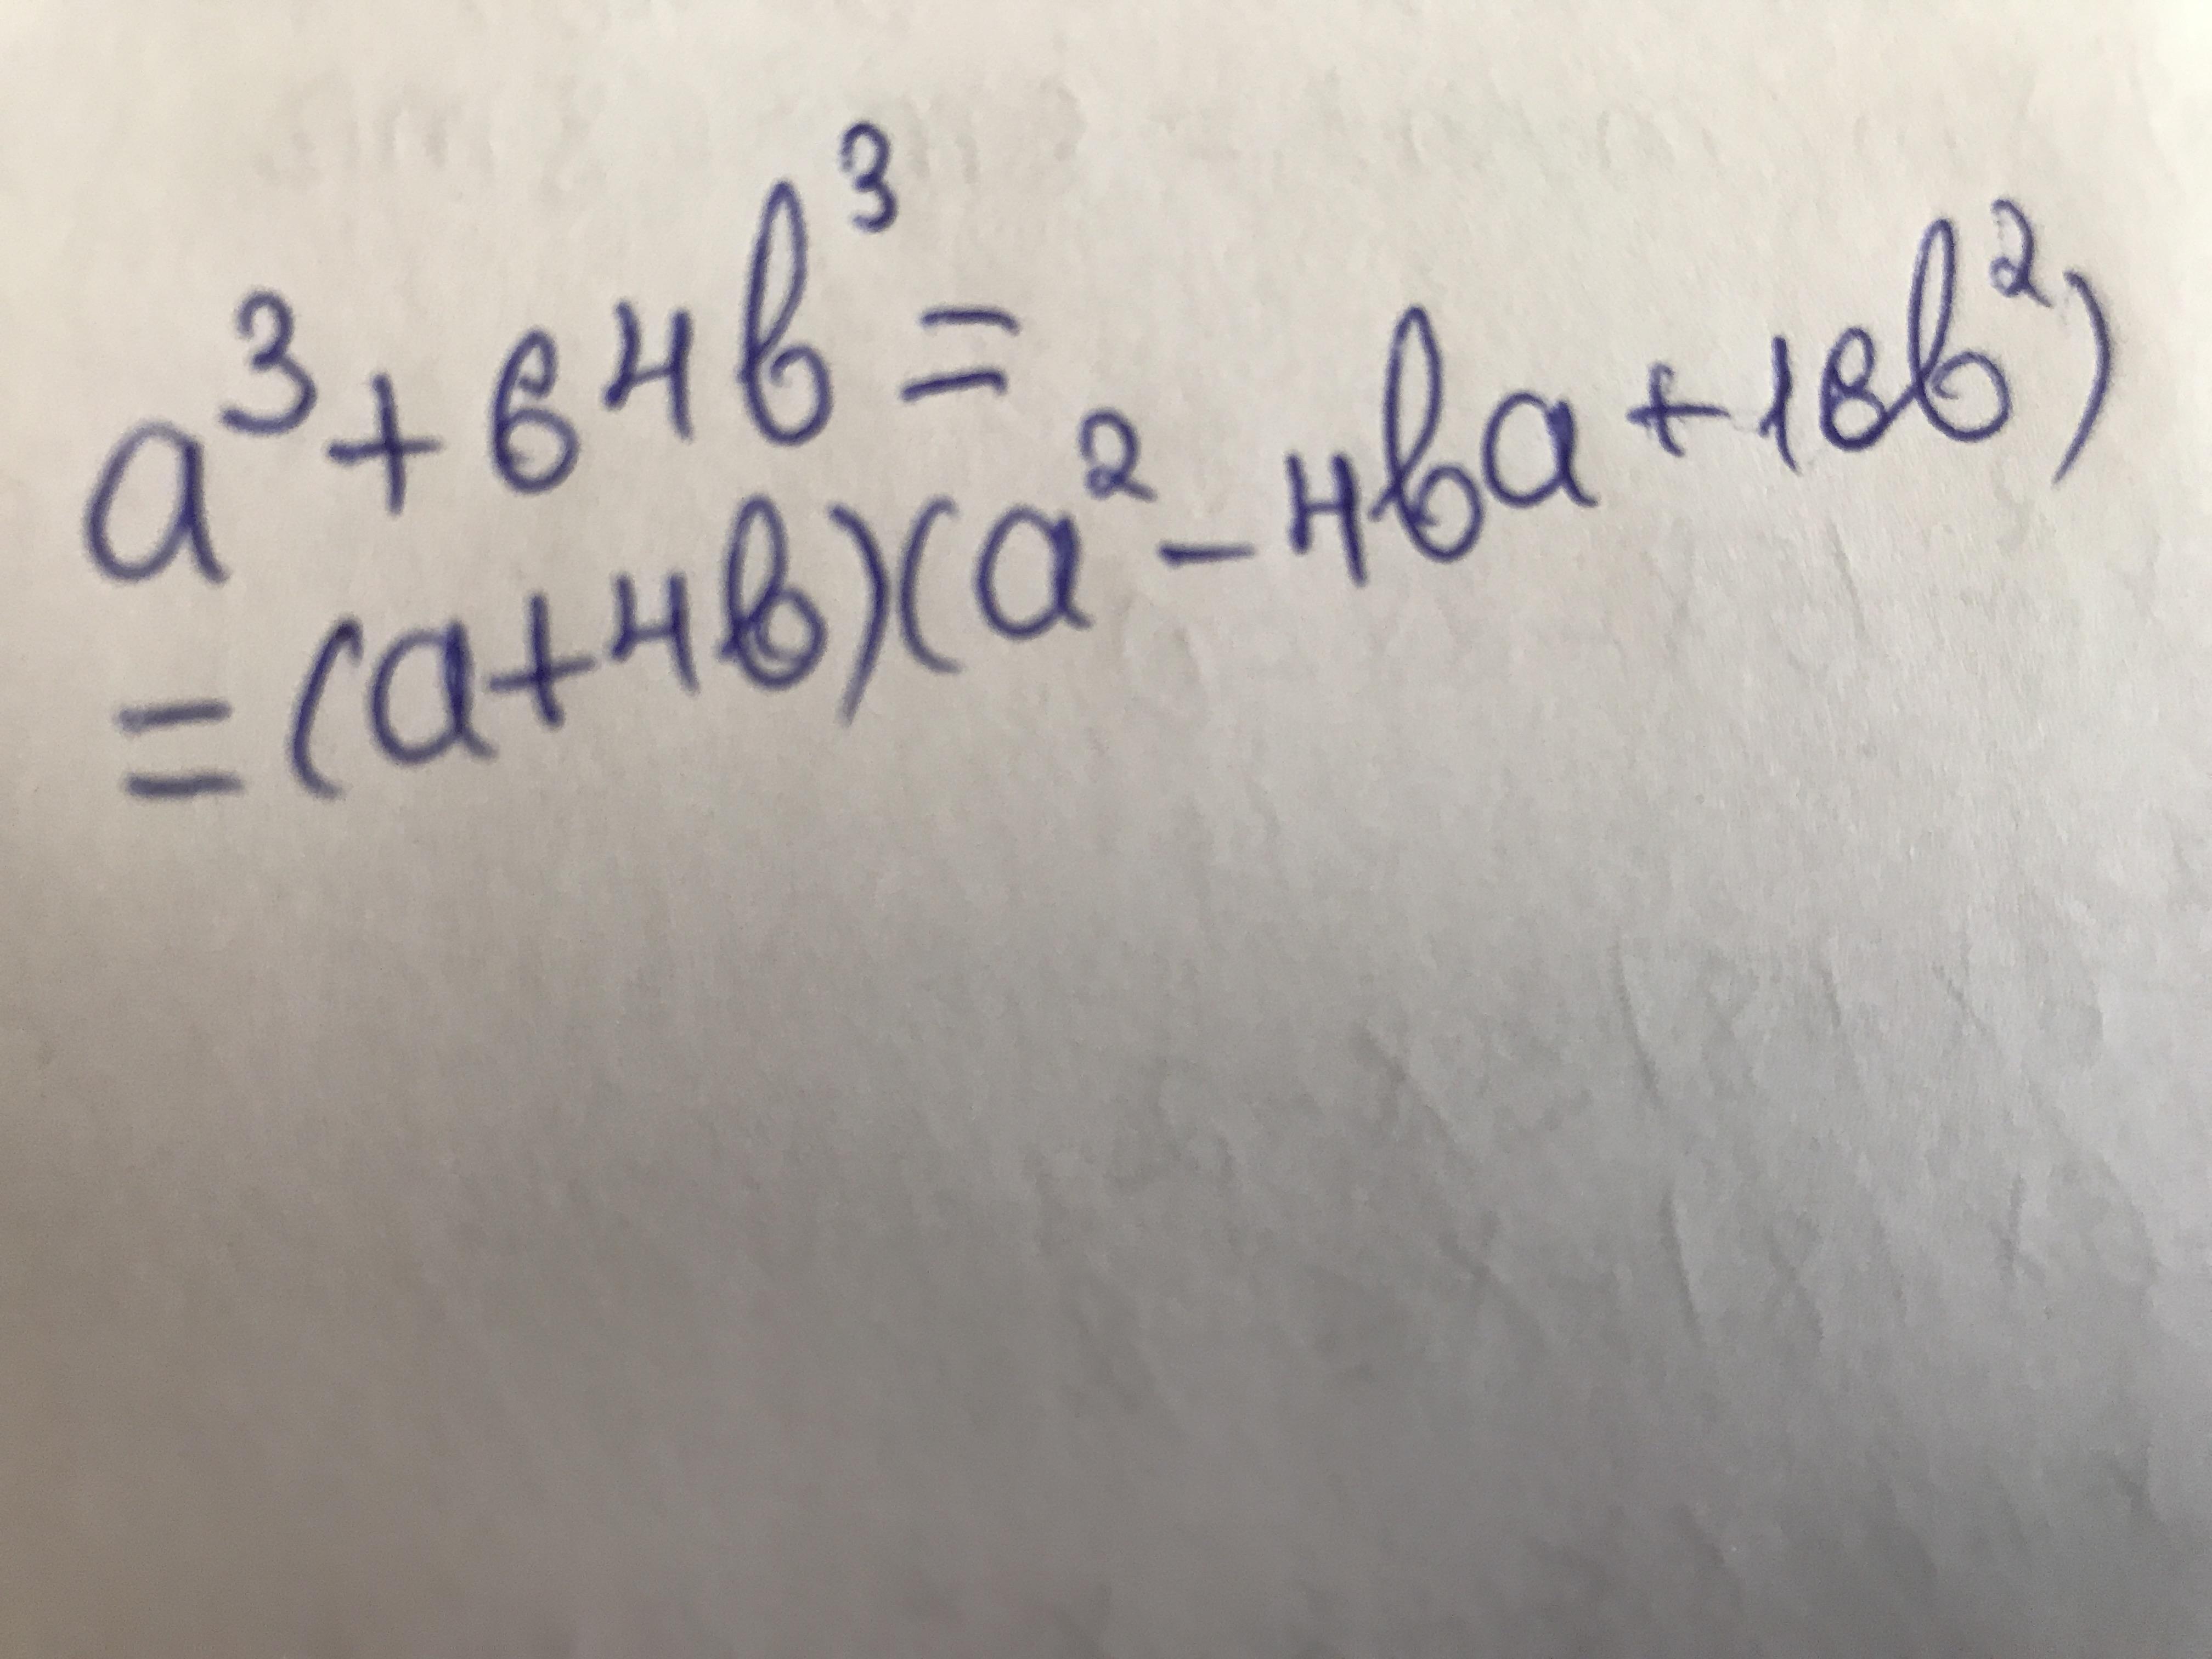 a³+64b³=
=(a+4b)(a²-4ba+16b²)